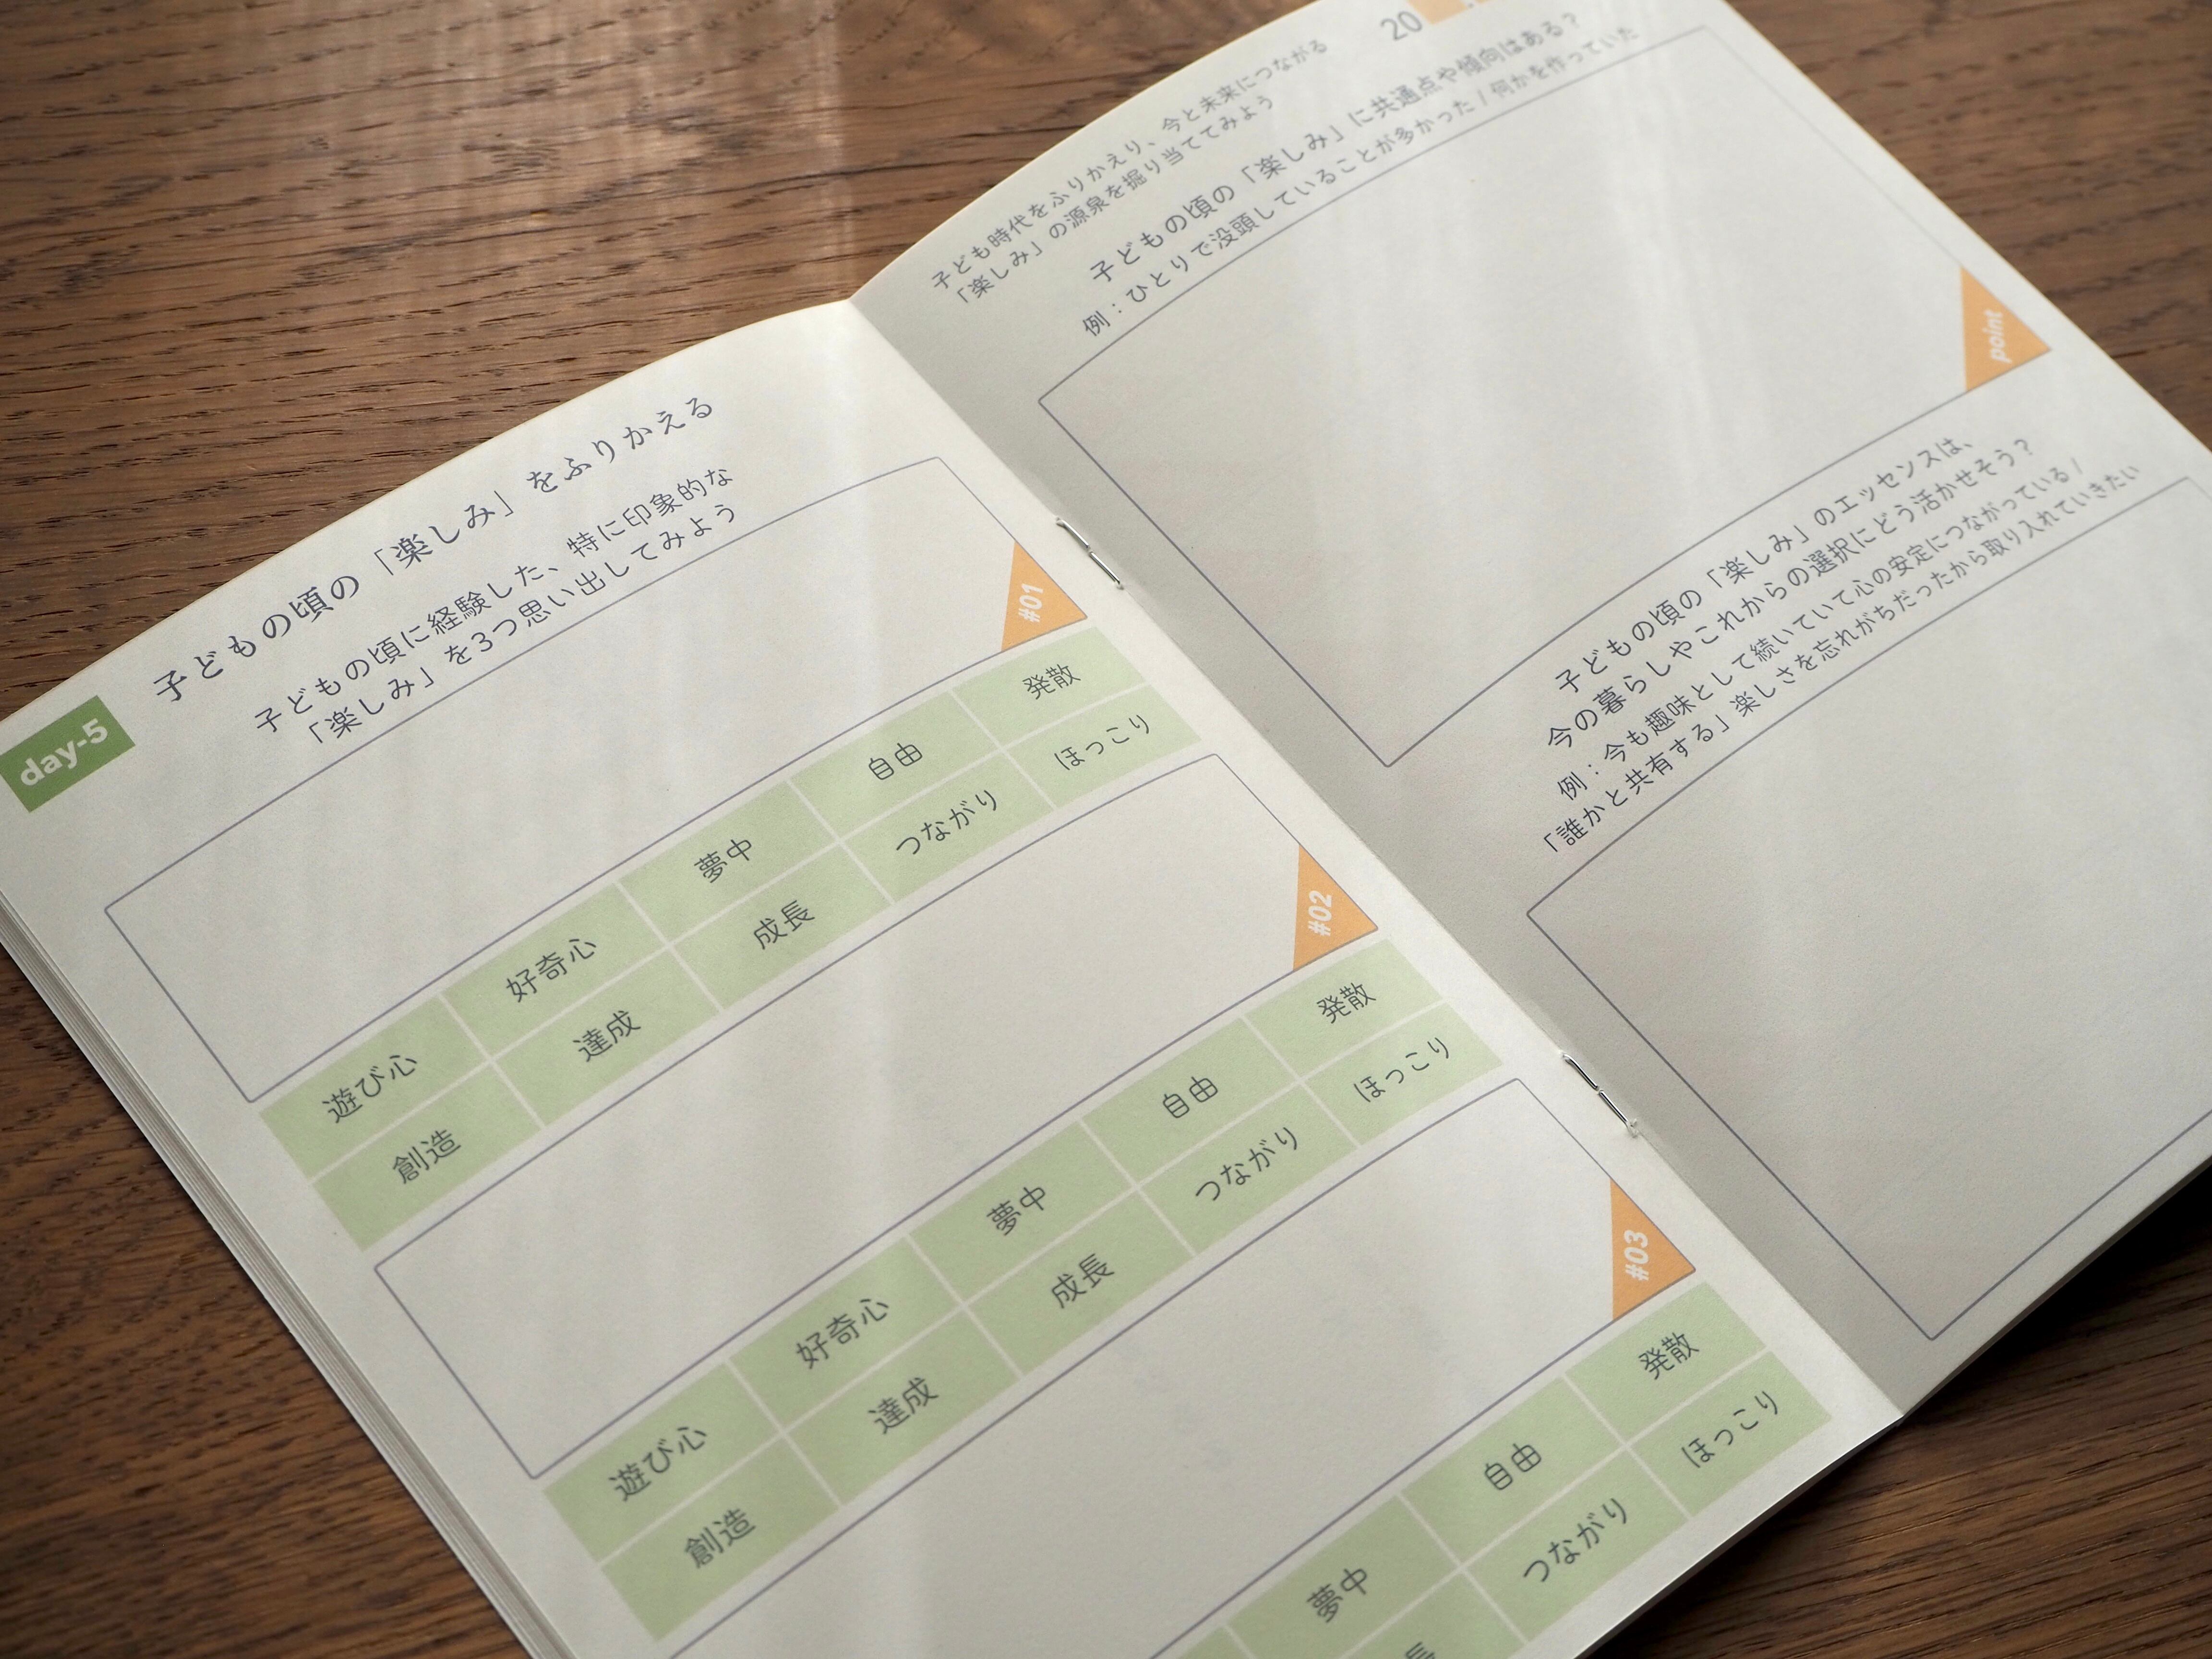 day-5
子どもの頃の「楽しみ」をふりかえる
子どもの頃に経験した、特に印象的な
「楽しみ」を3つ思い出してみよう
#01
遊び心 好奇心 夢中 自由 発散
創造 達成 成長 つながり ほっこり
#02
遊び心 好奇心 夢中 自由 発散
創造 達成 成長 つながり ほっこり
#03
夢中 自由 発散
長 つながり ほっこり
子ども時代をふりかえり、今と未来につながる
「楽しみ」の源泉を掘り当ててみよう
20
子どもの頃の「楽しみ」に共通点や傾向はある？
例：ひとりで没頭していることが多かった / 何かを作っていた
point
子どもの頃の「楽しみ」のエッセンスは、
今の暮らしやこれからの選択にどう活かせそう？
例：今も趣味として続いていて心の安定につながっている /
「誰かと共有する」楽しさを忘れがちだったから取り入れていきたい